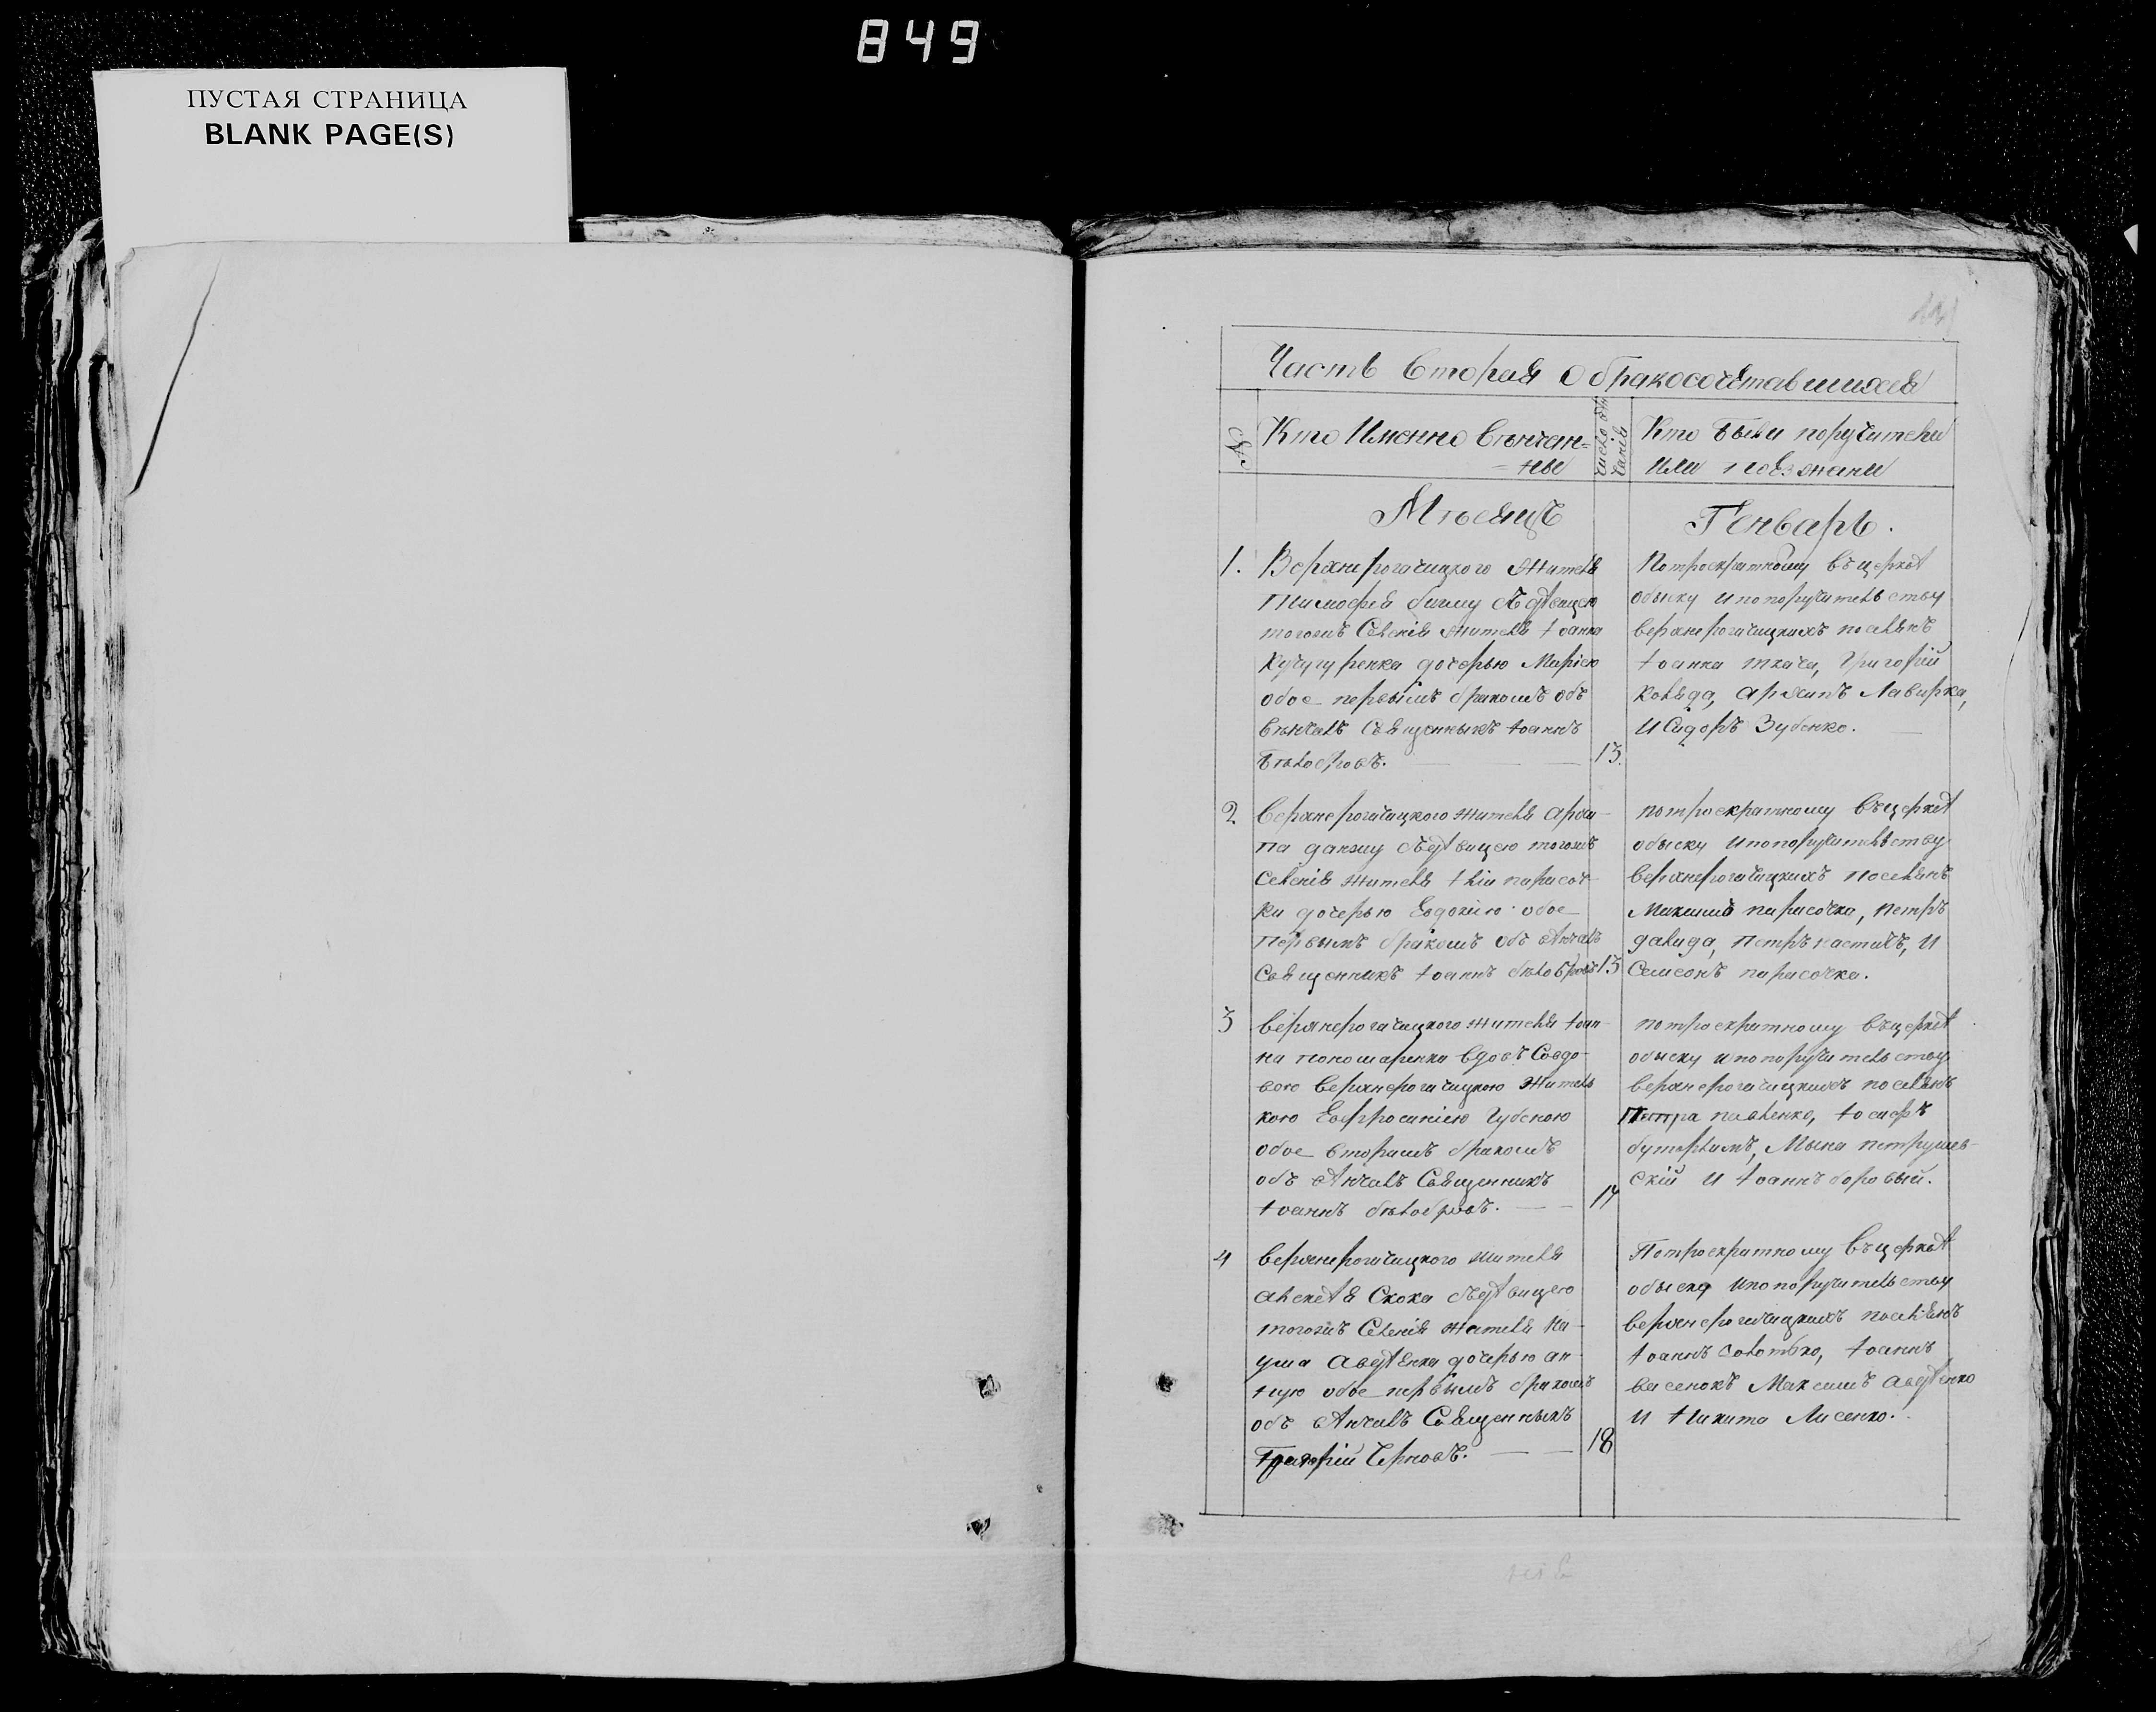 849
ПУСТАЯ СТРАНИЦА
BLANK PAGE(S)
Часть вторая о бракосочѣтавшихся
№
Кто Именно Вѣнчан=
=ные
число вѣн
чанія
Кто были поручители
или поѣзжани
Мѣсяцъ
Генварь.
1. Верхнерогачицкого жителя
Тимофея сѣдѣвицею
тогожъ Селенія жителя Iоанна
Кучугуренка дочерью Марiею
обое первымъ бракомъ объ
вѣнчалъ Священныкъ Iоаннъ
Бѣлобровъ.
13.
Потроекратному въцерквѣ
обыску ипопоручительству
верхнерогачицкихъ поселянъ
Iоанна ткача, Григорій
Коляда, Архипъ Лавирка,
И Сидоръ Зубенко.
2 верхнерогачицкого жителя Архи-
па сѣдѣвицею тогожъ
Селенія жителя Iліи парасоч-
ки дочерью Евдокiею обое
первымъ бракомъ объ вѣнчалъ
Священникъ Iоаннъ бѣлобровъ
13
потроекратному въцерквѣ
обыску ипопоручительству
верхнерогачицкихъ поселянъ
Максимъ парасочка, петръ
далида, петръ настичъ, И
Самсонъ парасочка.
3 верхнерогачицкого жителя Iоан-
на пономаренка вдовъ Совдо-
вою верхнерогачицкою житель
кою Евфросинiею Губскою
обое вторымъ бракомъ
объ вѣнчалъ Священникъ
Iоаннъ бѣлобровъ.
14
потроекратному въцерквѣ
обыску ипопоручительству
верхнерогачицкихъ поселянъ
Петра павленко, Iосифъ
Мына петрушев-
скій И Iоаннъ боровый.
4 верхнерогачицкого жителя
Алексѣя Скока сѣдѣвицею
тогожъ Селенія жителя Ка-
уша Авдѣенка дочерью ан-
ною обое первымъ бракомъ
объ вѣнчалъ Священныкъ
Григорій Черновъ.
18
Потроекратному въцерквѣ
обыску ипопоручительству
верхнерогачицкихъ поселянъ
Iоаннъ Iоаннъ
васенокъ Максимъ Авдѣенко
И Никита Лисенко.